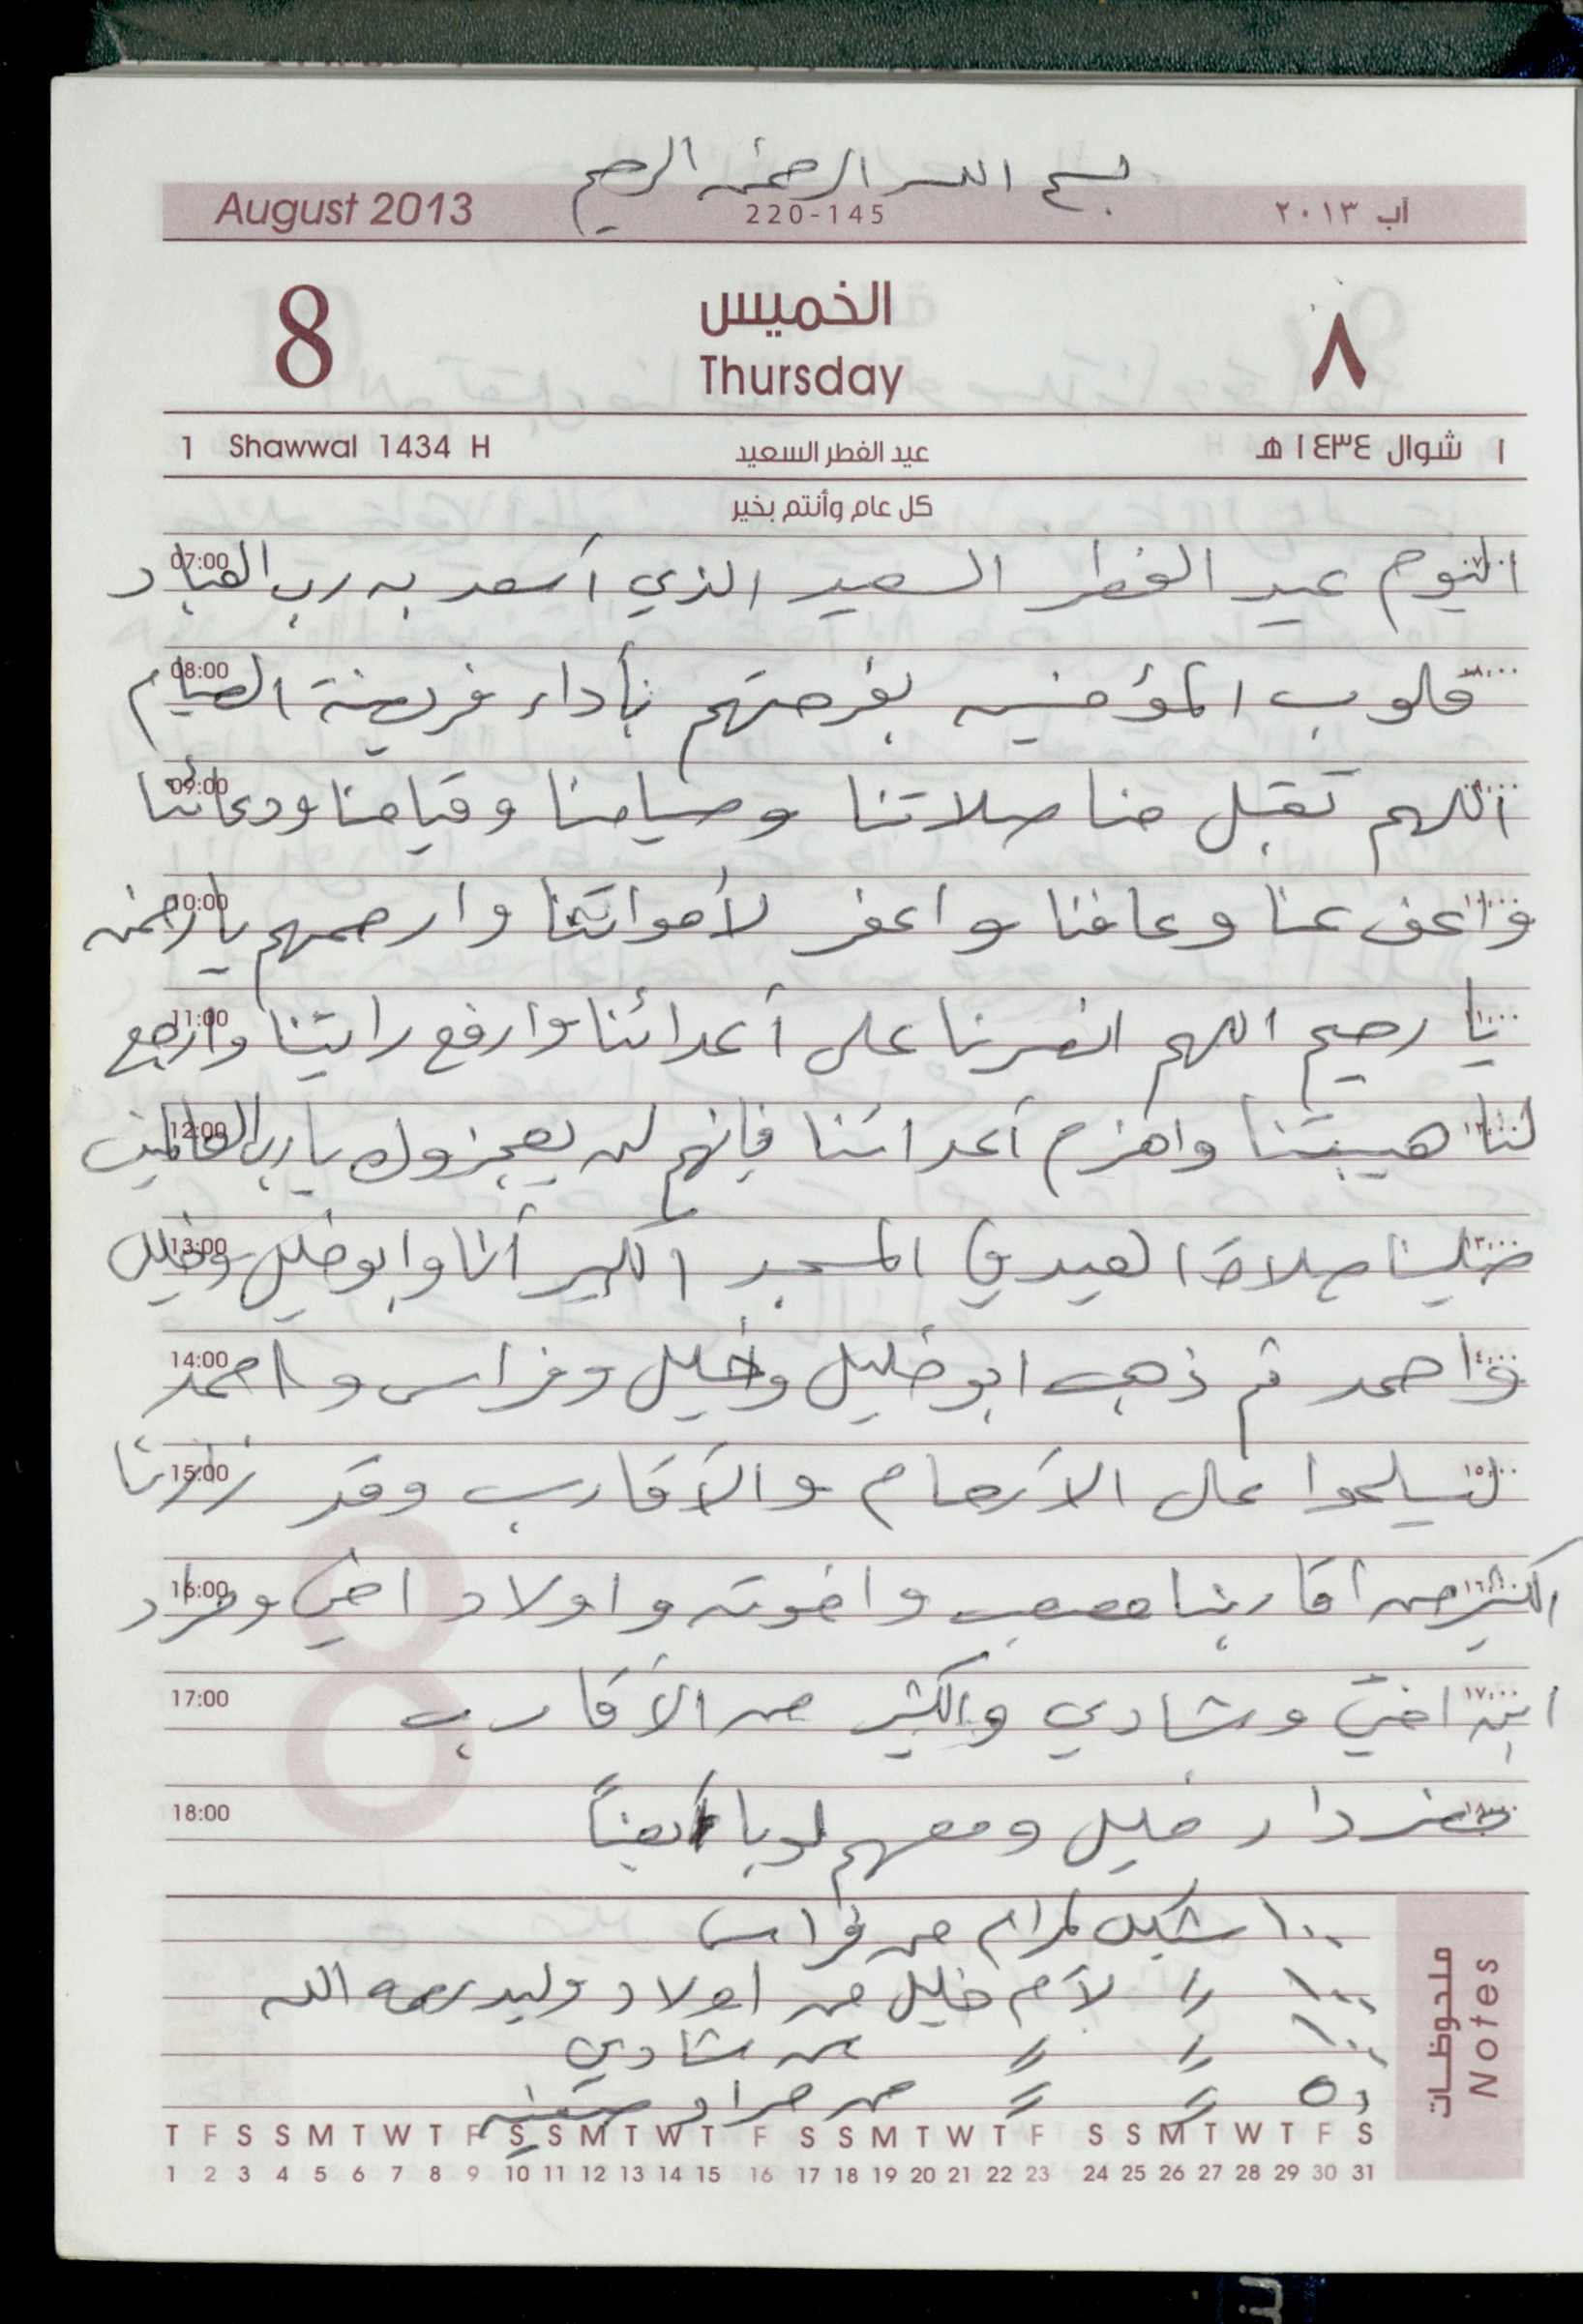 بسم الله الرحمن الرحيم
August 2013 220-145 آب ٢٠١٣
8 الخميس ٨
Thursday
1 Shawwal 1434 H عيد الفطر السعيد ١ شوال ١٤٣٤ هـ
كل عام وأنتم بخير
07:00 اليوم عيد الفطر السعيد الذي أسعد به رب العباد ٠٧:٠٠
08:00 قلوب المؤمنين بفرحتهم بأداء فريضة الصيام ٠٨:٠٠
09:00 اللهم تقبل منا صلاتنا وصيامنا وقيامنا ودعائنا ٠٩:٠٠
10:00 واعف عنا وعافنا واغفر لأمواتنا وارحمهم يا رحمن ١٠:٠٠
11:00 يا رحيم اللهم انصرنا على أعدائنا وارفع رايتنا وارجع ١١:٠٠
12:00 لنا هيبتنا واهزم أعدائنا فإنهم لن يعجزوك يا رب العالمين ١٢:٠٠
13:00 صلينا صلاة العيد في المسجد الكبير أنا وابو خليل وخليل ١٣:٠٠
14:00 واحمد ثم ذهب ابو خليل وخليل وفراس واحمد ١٤:٠٠
15:00 ليسلموا على الأرحام والأقارب وقد زارنا ١٥:٠٠
16:00 الكثير من أقاربنا مصعب واخوته واولاد اخي ومراد ١٦:٠٠
17:00 ابن اختي وشادي والكثير من الأقارب ١٧:٠٠
18:00 حضر دار خليل ومعهم لوبا أيضاً ١٨:٠٠
١٠٠ شيكل لمرام من فراس
١٠٠ // لأم خليل من اولاد وليد رحمه الله
١٠٠ // // من شادي
٥٠ // // من مراد
ملحوظات
Notes
T F S S M T W T F S S M T W T F S S M T W T F S S M T W T F S
1 2 3 4 5 6 7 8 9 10 11 12 13 14 15 16 17 18 19 20 21 22 23 24 25 26 27 28 29 30 31